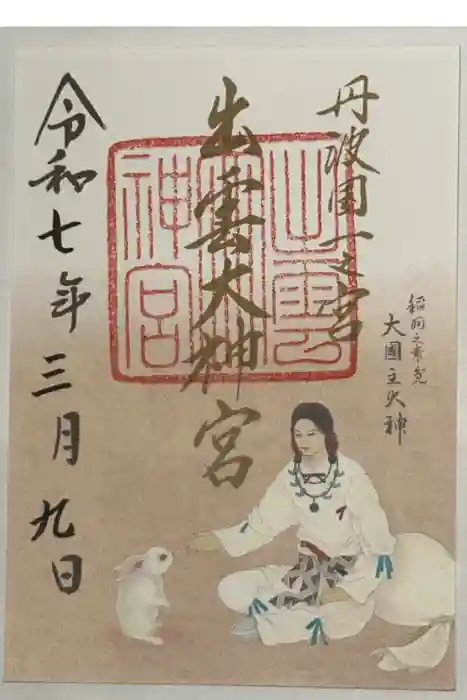 丹波国一之宮
出雲大神宮
令和七年三月九日
大國主大神
出雲
神宮